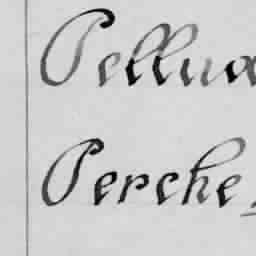 Pellua
Perche